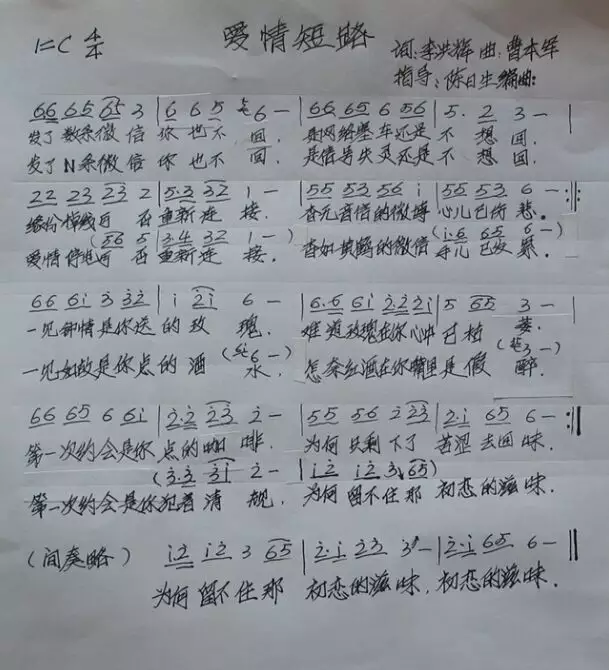 爱情短路
1=C 4/4
词:李洪辉 曲:曹本军
指导:陈日生编曲:
66 65 65 3 | 6 6 5 6 — | 66 65 6 56 | 5· 2 3 — |
发了数条微信 你也不回. 是网络塞车还是不想回.
发了N条微信 你也不回. 是信号失灵还是不想回.
22 23 23 2 | 5·3 32 1 — | 55 53 56 i | 55 53 6 — :||
缘份掉线后 在重新连接. 杳无音信的微博 心儿已伤悲.
(56 5 | 3·4 32 1 —) (i·6 65 6 —)
爱情停电后 在重新连接. 杳如黄鹤的微信 心儿已发累.
66 6i 3 32 | i 2i 6 — | 6·6 6i 2·2 2i | 5 65 3 — |
一见钟情是你送的玫瑰. 难道玫瑰在你心中已枯萎.
(6 —) (3 —)
一见如故是你点的酒水. 怎奈红酒在你嘴里是假醉.
66 65 6 6i | 2·2 23 2 — | 55 56 2 23 | 2·i 65 6 — :||
第一次约会是你点的咖啡. 为何只剩下了苦涩去回味.
(3·3 3i 2 — | i2 i2 3 65)
第一次约会是你犯着清靓. 为何留不住那初恋的滋味.
(间奏略) i2 i2 3 65 | 2·i 23 3 — | 2·i 65 6 — ||
为何留不住那 初恋的滋味, 初恋的滋味.